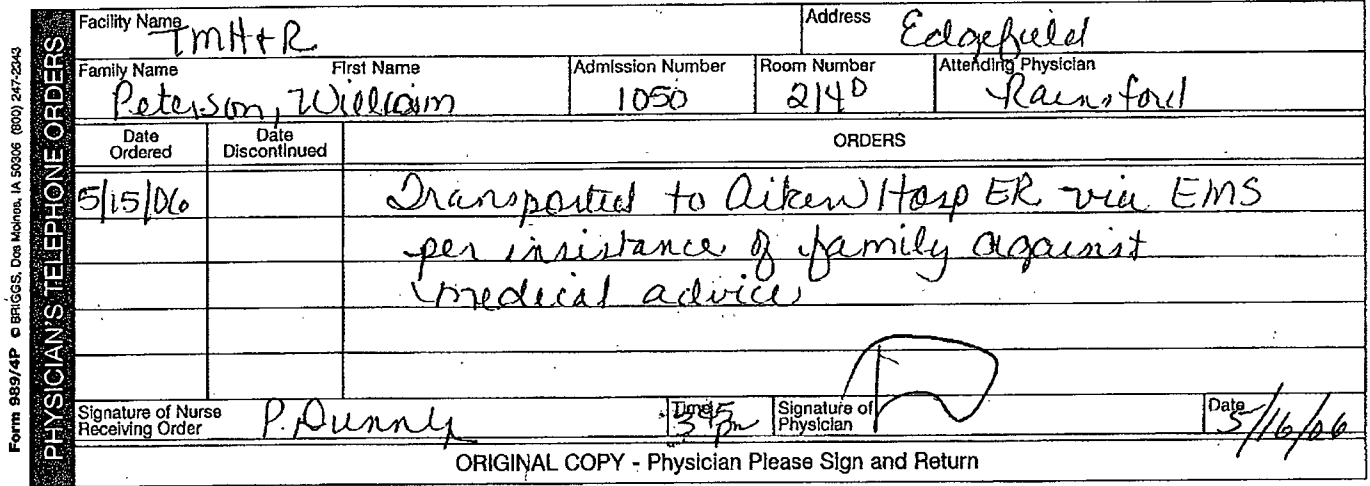 Form 989/4P © BRIGGS, Des Moines, IA 50306 (800) 247-2343
PHYSICIAN'S TELEPHONE ORDERS
Facility Name TMH+R Address Edgefield
Family Name First Name Admission Number Room Number Attending Physician
Peterson, William 1050 214D Rainsford
Date Ordered Date Discontinued ORDERS
5/15/06 Transported to Aiken Hosp ER via EMS
per insistance of family against
medical advice
Signature of Nurse Receiving Order P. Dunn Time 345 pm Signature of Physician Date 5/16/06
ORIGINAL COPY - Physician Please Sign and Return